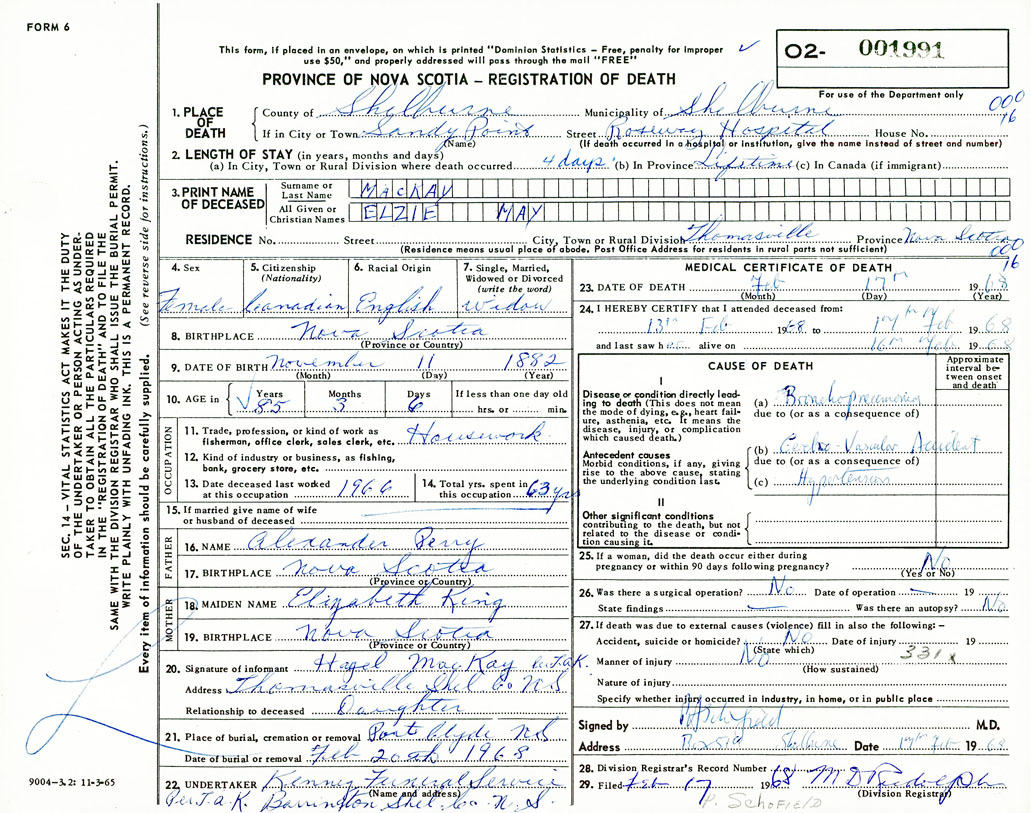 FORM 6
This form, if placed in an envelope, on which is printed "Dominion Statistics – Free, penalty for improper
use $50," and properly addressed will pass through the mail "FREE"
O2- 001991
For use of the Department only
PROVINCE OF NOVA SCOTIA – REGISTRATION OF DEATH
000
16
1. PLACE OF DEATH County of Shelburne Municipality of Shelburne
If in City or Town Sandy Point Street Roseway Hospital House No.
(Name) (If death occurred in a hospital or institution, give the name instead of street and number)
2. LENGTH OF STAY (in years, months and days)
(a) In City, Town or Rural Division where death occurred 4 days (b) In Province Lifetime (c) In Canada (if immigrant)
3. PRINT NAME OF DECEASED
Surname or Last Name MACKAY
All Given or Christian Names ELZIE MAY
RESIDENCE No. Street City, Town or Rural Division Thomasville Province Nova Scotia
(Residence means usual place of abode. Post Office Address for residents in rural parts not sufficient)
000
16
4. Sex Female
5. Citizenship (Nationality) Canadian
6. Racial Origin English
7. Single, Married, Widowed or Divorced (write the word) Widow
8. BIRTHPLACE Nova Scotia
(Province or Country)
9. DATE OF BIRTH November 11 1882
(Month) (Day) (Year)
10. AGE in Years 85 Months 3 Days 6 If less than one day old hrs. or min.
OCCUPATION
11. Trade, profession, or kind of work as fisherman, office clerk, sales clerk, etc. Housework
12. Kind of industry or business, as fishing, bank, grocery store, etc.
13. Date deceased last worked at this occupation 1966
14. Total yrs. spent in this occupation 63 yrs
15. If married give name of wife or husband of deceased
FATHER
16. NAME Alexander Perry
17. BIRTHPLACE Nova Scotia
(Province or Country)
MOTHER
18. MAIDEN NAME Elizabeth King
19. BIRTHPLACE Nova Scotia
(Province or Country)
20. Signature of informant Hazel MacKay Per T.a.K.
Address Thomasville Shel Co N S
Relationship to deceased Daughter
21. Place of burial, cremation or removal Port Clyde N S
Date of burial or removal Feb 20th 1968
22. UNDERTAKER Kenney Funeral Service
(Name and address)
Per T.a.K. Barrington Shel. Co. N. S.
MEDICAL CERTIFICATE OF DEATH
23. DATE OF DEATH Feb 17th 1968
(Month) (Day) (Year)
24. I HEREBY CERTIFY that I attended deceased from:
13th Feb 1968 to 17th Feb 1968
and last saw her alive on 16th Feb. 1968
CAUSE OF DEATH
Approximate interval between onset and death
I
Disease or condition directly leading to death (This does not mean the mode of dying, e.g., heart failure, asthenia, etc. It means the disease, injury, or complication which caused death.)
(a) Bronchopneumonia
due to (or as a consequence of)
Antecedent causes
Morbid conditions, if any, giving rise to the above cause, stating the underlying condition last.
(b) Cerebro-Vascular Accident
due to (or as a consequence of)
(c) Hypertension
II
Other significant conditions contributing to the death, but not related to the disease or condition causing it.
25. If a woman, did the death occur either during pregnancy or within 90 days following pregnancy? No
(Yes or No)
26. Was there a surgical operation? No Date of operation 19
State findings Was there an autopsy? No
27. If death was due to external causes (violence) fill in also the following: –
Accident, suicide or homicide? No Date of injury 19
(State which)
Manner of injury No 331x
(How sustained)
Nature of injury
Specify whether injury occurred in industry, in home, or in public place
Signed by Schofield M.D.
Address Box Shelburne Date 17th Feb 1968
28. Division Registrar's Record Number
29. Filed Feb 17 1968
(Division Registrar)
P. SCHOFIELD
SEC. 14 – VITAL STATISTICS ACT MAKES IT THE DUTY
OF THE UNDERTAKER OR PERSON ACTING AS UNDER-
TAKER TO OBTAIN ALL THE PARTICULARS REQUIRED
IN THE "REGISTRATION OF DEATH" AND TO FILE THE
SAME WITH THE DIVISION REGISTRAR WHO SHALL ISSUE THE BURIAL PERMIT.
WRITE PLAINLY WITH UNFADING INK. THIS IS A PERMANENT RECORD.
Every item of information should be carefully supplied. (See reverse side for instructions.)
9004-3.2: 11-3-65